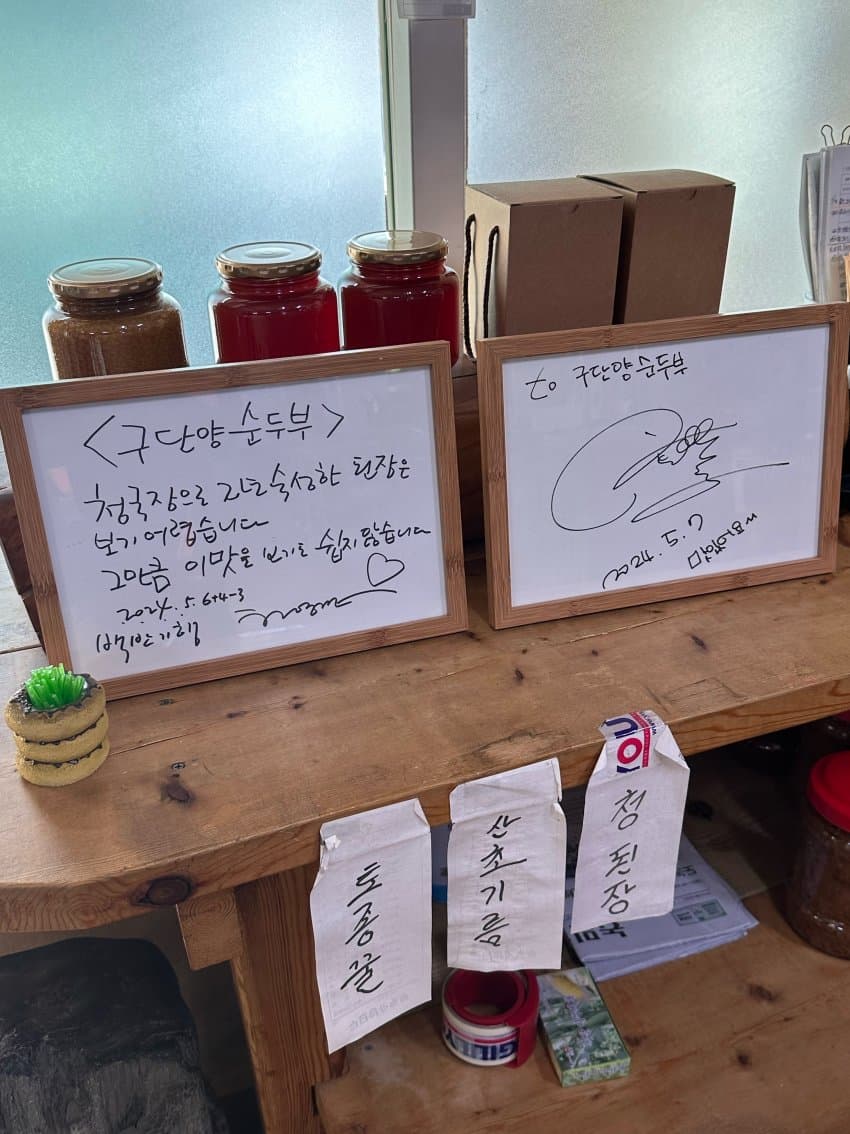 <구단양순두부>
청국장으로 21년 숙성한 된장은
보기 어렵습니다
그만큼 이맛을 보기도 쉽지 않습니다
2024. 5. 6+4-3
백반기행
to 구단양순두부
2024. 5. 7
토종꿀
산초기름
청된장